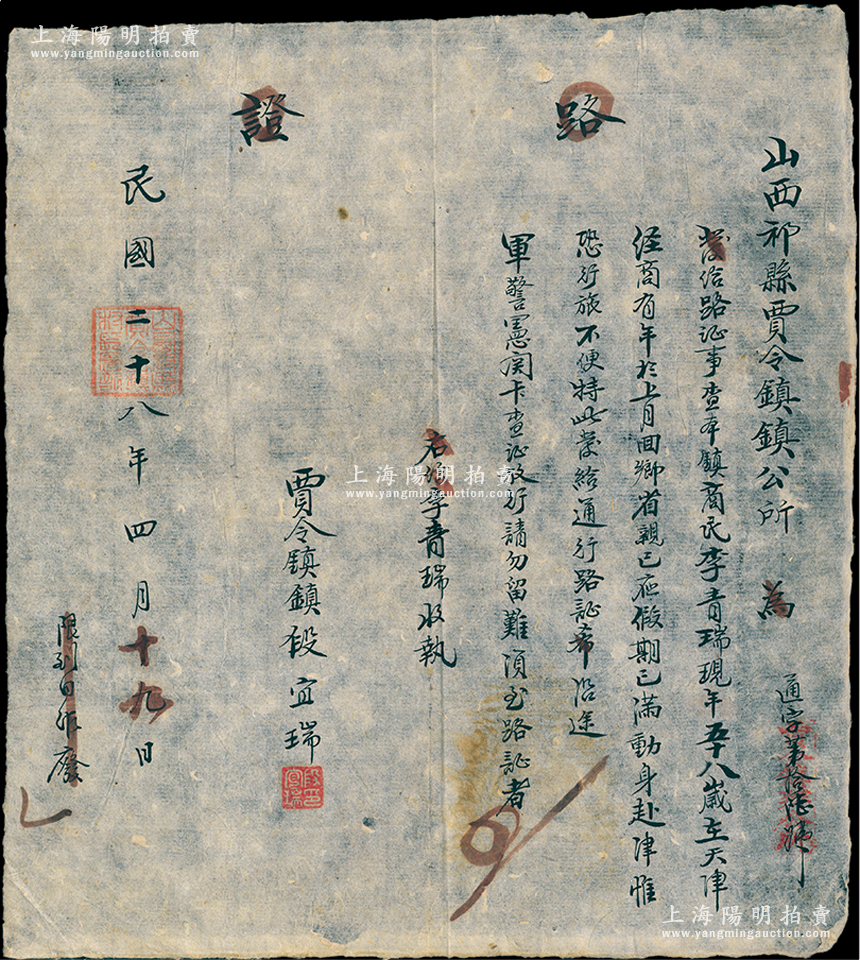 上海陽明拍賣
www.yangmingauction.com
路證
山西祁縣賈令鎮鎮公所 為
通字第拾陸號
發给路证事查本鎮商民李青瑞現年五十八歲在天津
经商有年於上月回鄉省親已在假期已滿動身赴津惟
恐行旅不便特此發給通行路証希沿途
軍警憲関卡查证放行請勿留難須至路証者
右给李青瑞收執
賈令鎮鎮 段宜瑞
民國二十八年四月十九日
限到日作廢
上海陽明拍賣
www.yangmingauction.com
上海陽明拍賣
www.yangmingauction.com